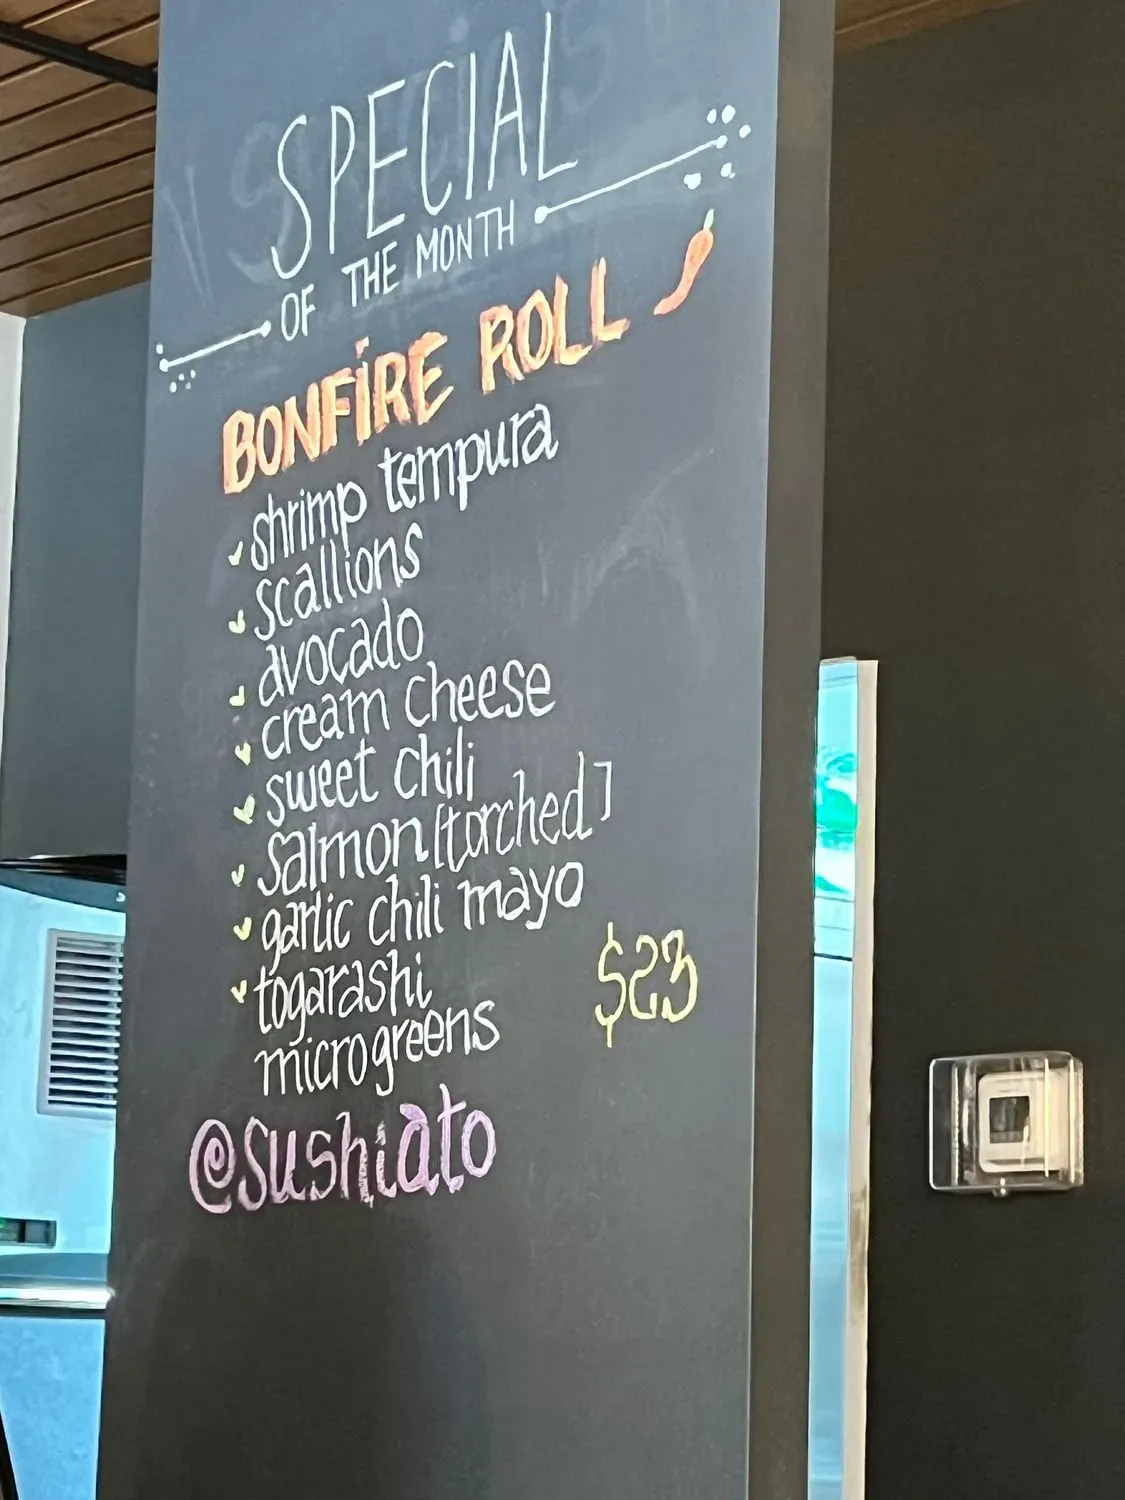 SPECIAL
OF THE MONTH
BONFIRE ROLL
shrimp tempura
scallions
avocado
cream cheese
sweet chili
salmon [torched]
garlic chili mayo
togarashi
microgreens
$23
@sushiato